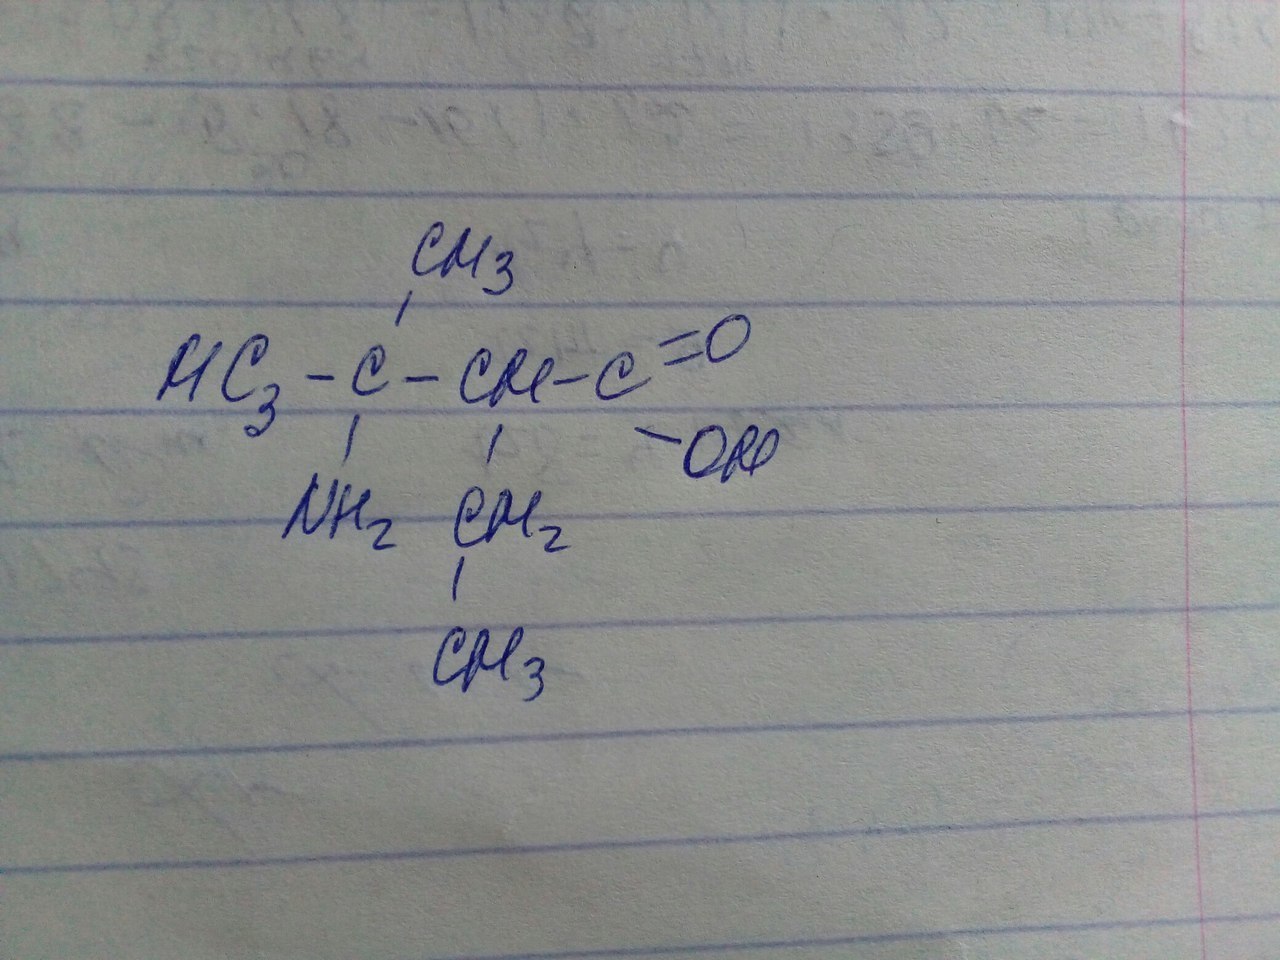 CH3
HC3 - C - CH - C =O
- OH
NH2 CH2
CH3